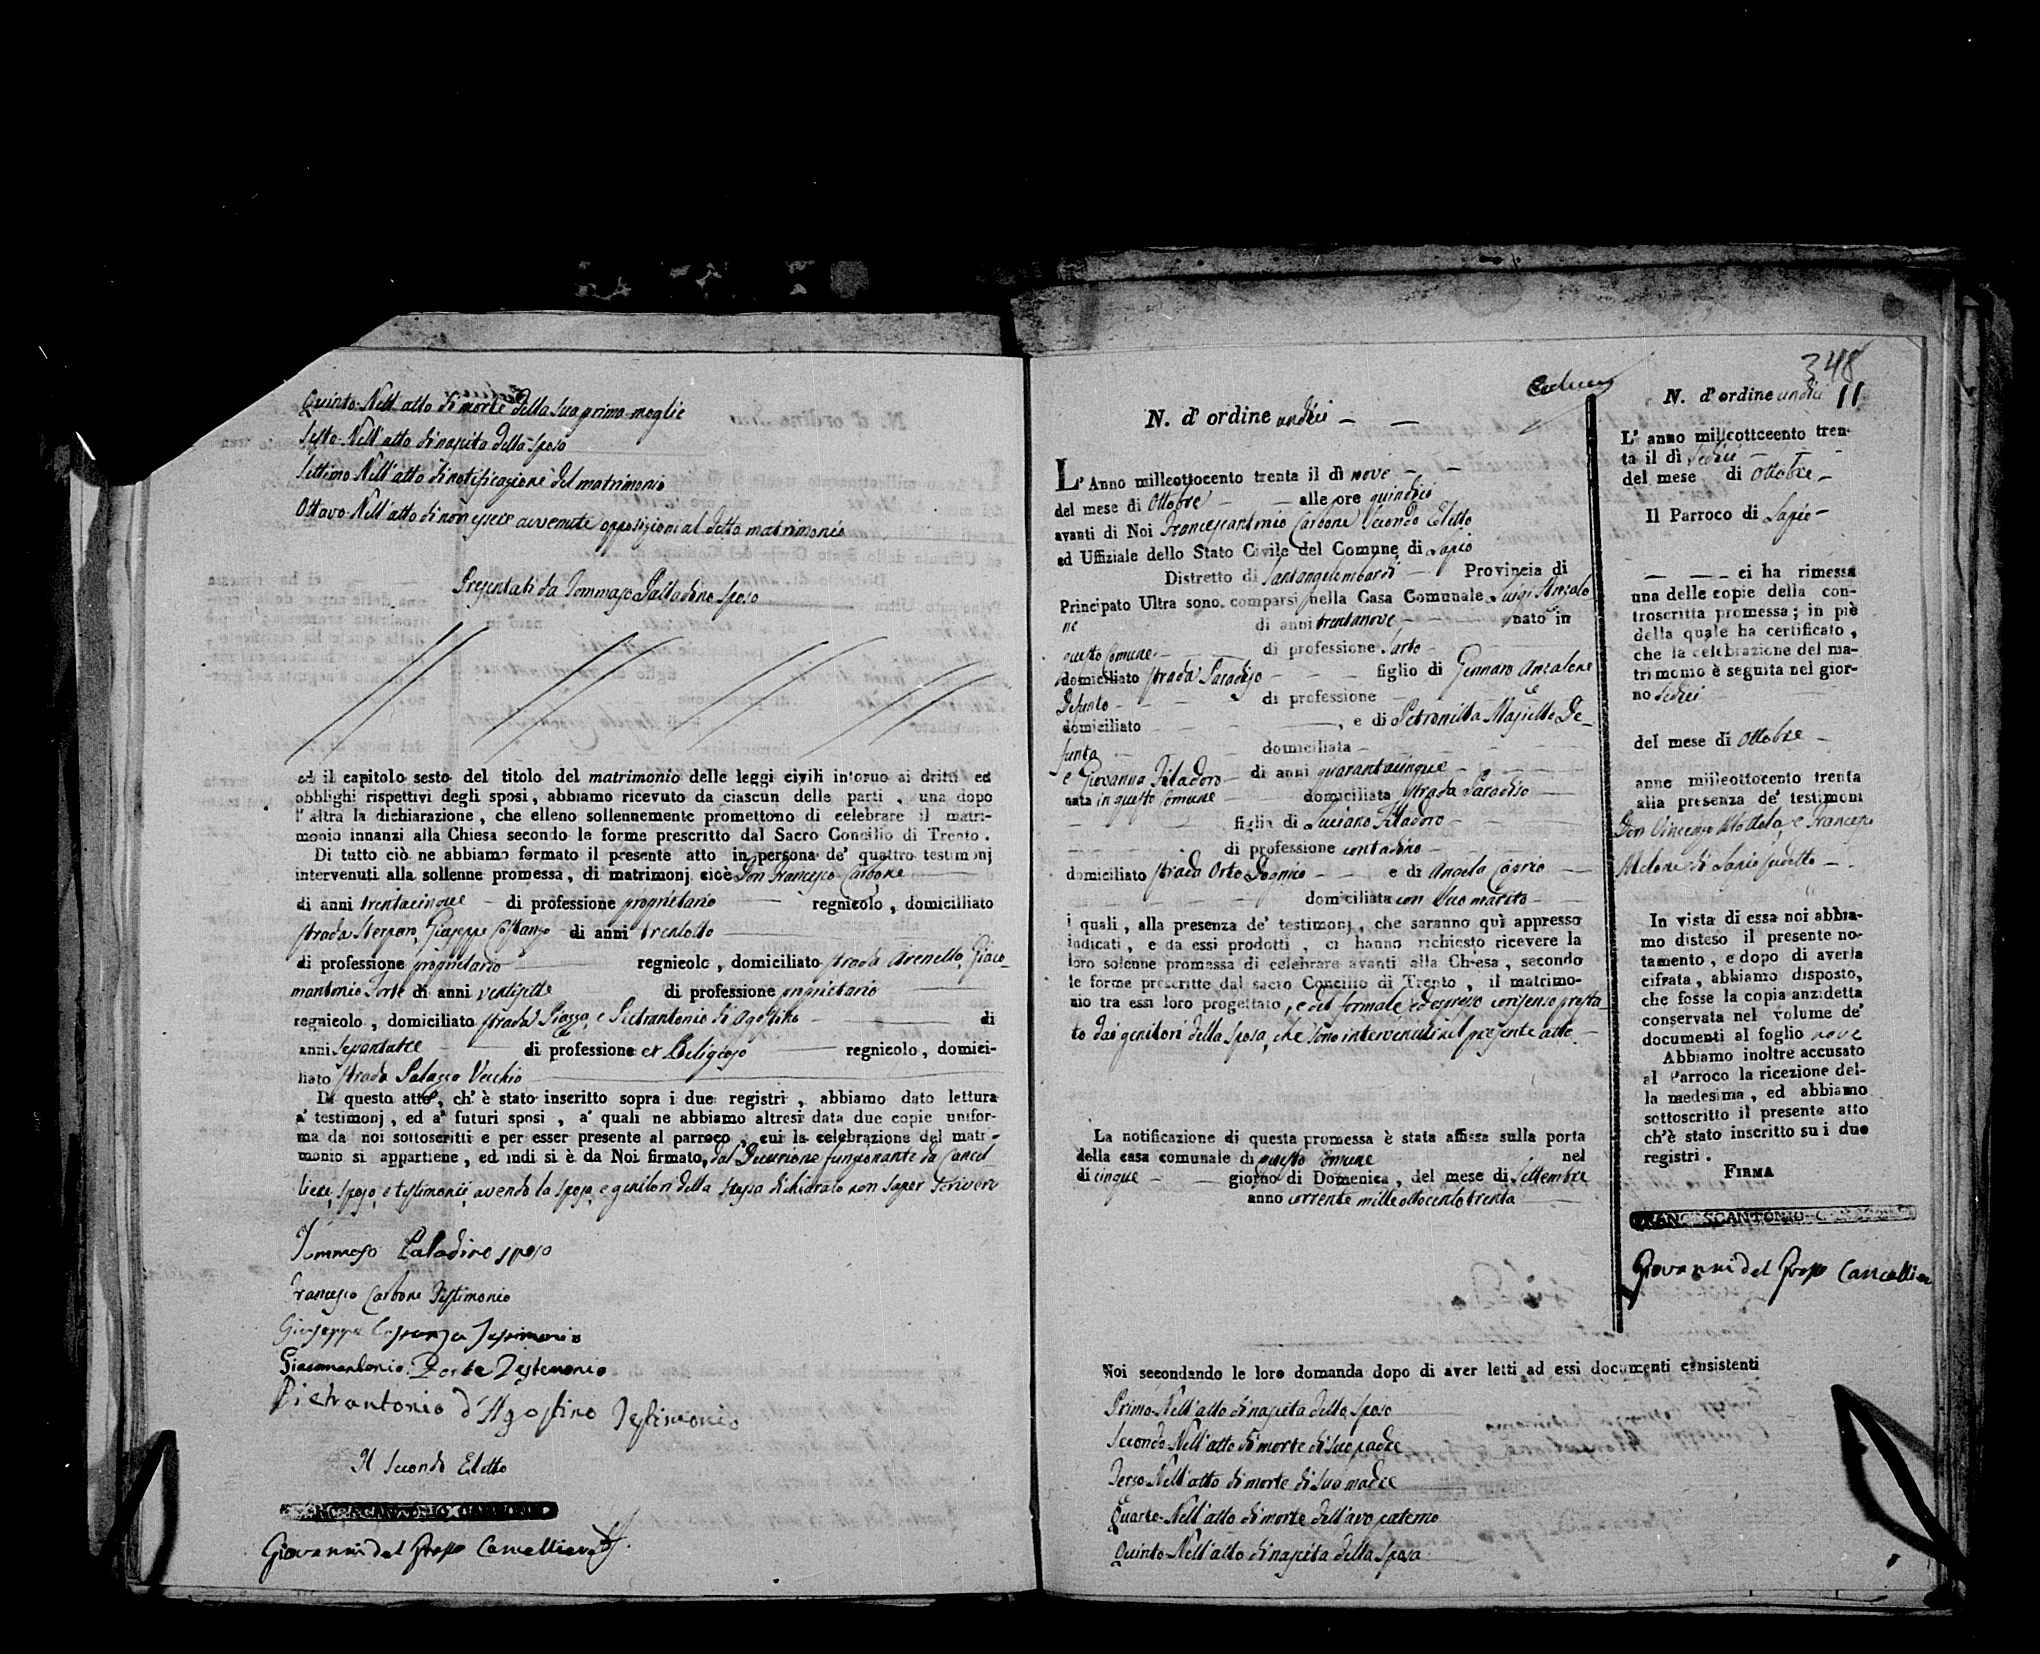 Quinto. Nell'atto di morte della sua prima moglie
Sesto. Nell'atto di nascita dello sposo
Settimo. Nell'atto di notificazione del matrimonio
Ottavo. Nell'atto di non essere avvenute opposizioni al detto matrimonio
Presentati da Tommaso Palladino sposo
ed il capitolo sesto del titolo del matrimonio delle leggi civili intorno ai dritti ed
obblighi rispettivi degli sposi, abbiamo ricevuto da ciascun delle parti, una dopo
l'altra la dichiarazione, che elleno sollennemente promettono di celebrare il matri-
monio innanzi alla Chiesa secondo le forme prescritto dal Sacro Concilio di Trento.
Di tutto ciò ne abbiamo formato il presente atto in persona de' quattro testimonj
intervenuti alla sollenne promessa, di matrimonj cioè Don Francesco Carbone
di anni trentacinque di professione proprietario regnicolo, domicilliato
strada Giuseppe Costanzo di anni trentotto
di professione proprietario regnicolo, domiciliato strada Arenello, Giaco-
mantonio Forte di anni ventisette di professione proprietario
regnicolo, domiciliato strada Piazza, e Pietrantonio di Agostino di
anni sessantatre di professione ex Religioso regnicolo, domici-
liato strada Palazzo Vecchio
Di questo atto, ch'è stato inscritto sopra i due registri, abbiamo dato lettura
a' testimonj, ed a' futuri sposi, a' quali ne abbiamo altresì data due copie unifor-
ma da noi sottoscritti e per esser presente al parroco, cui la celebrazione del matri-
monio si appartiene, ed indi si è da Noi firmato, dal Decurione funzionante da Cancel-
liere, sposo, e testimonii, avendo la sposa, e genitori della stessa dichiarato non saper scrivere
Tommaso Paladino sposo
Francesco Carbone Testimonio
Giuseppe Costanzo Testimonio
Giacomantonio Forte Testimonio
Pietrantonio d'Agostino Testimonio
Il Secondo Eletto
FRANCESCANTONIO CARBONE
Giovanni del Grosso Cancelliere
348
N. d'ordine undici
L'Anno milleottocento trenta il dì nove
del mese di Ottobre alle ore quindici
avanti di Noi Francescantonio Carbone Secondo Eletto
ed Uffiziale dello Stato Civile del Comune di Lapio
Distretto di Santangelombardi Provincia di
Principato Ultra sono comparsi nella Casa Comunale Luigi Anzalo
ne di anni trentanove nato in
questo Comune di professione Sarto
domiciliato strada Paradiso figlio di Gennaro Anzalone
Defunto di professione
domiciliato , e di Petronilla Masiello De-
funta domiciliata
e Giovanna Filadoro di anni quarantacinque
nata in questo Comune domiciliata strada Paradiso
figlia di Luciano Filadoro
di professione contadino
domiciliato strada Orto e di Angela Caprio
domiciliata con suo marito
i quali, alla presenza de' testimonj, che saranno quì appresso
indicati, e da essi prodotti, ci hanno richiesto ricevere la
loro solenne promessa di celebrare avanti alla Chiesa, secondo
le forme prescritte dal sacro Concilio di Trento, il matrimo-
nio tra essi loro progettato, e del formale ed espresso consenso presta
to dai genitori della sposa, che sono intervenuti nel presente atto
La notificazione di questa promessa è stata affissa sulla porta
della casa comunale di questo Comune nel
di cinque giorno di Domenica, del mese di Settembre
anno corrente milleottocentotrenta
Noi secondando le loro domanda dopo di aver letti ad essi documenti consistenti
Primo. Nell'atto di nascita dello sposo
Secondo. Nell'atto di morte di suo padre
Terzo. Nell'atto di morte di sua madre
Quarto. Nell'atto di morte dell'avo paterno
Quinto. Nell'atto di nascita della sposa
N. d'ordine undici 11
L'anno milleottocento tren-
ta il dì sedici
del mese di Ottobre
Il Parroco di Lapio
ci ha rimessa
una delle copie della con-
troscritta promessa; in piè
della quale ha certificato,
che la celebrazione del ma-
trimonio è seguita nel gior-
no sedici
del mese di Ottobre
anno milleottocento trenta
alla presenza de' testimoni
Don Vincenzo e Francesco
Melone di Lapio sudetto
In vista di essa noi abbia-
mo disteso il presente no-
tamento, e dopo di averla
cifrata, abbiamo disposto,
che fosse la copia anzidetta
conservata nel volume de'
documenti al foglio nove
Abbiamo inoltre accusato
al Parroco la ricezione del-
la medesima, ed abbiamo
sottoscritto il presente atto
ch'è stato inscritto su i due
registri.
FIRMA
FRANCESCANTONIO CARBONE
Giovanni del Grosso Cancelliere